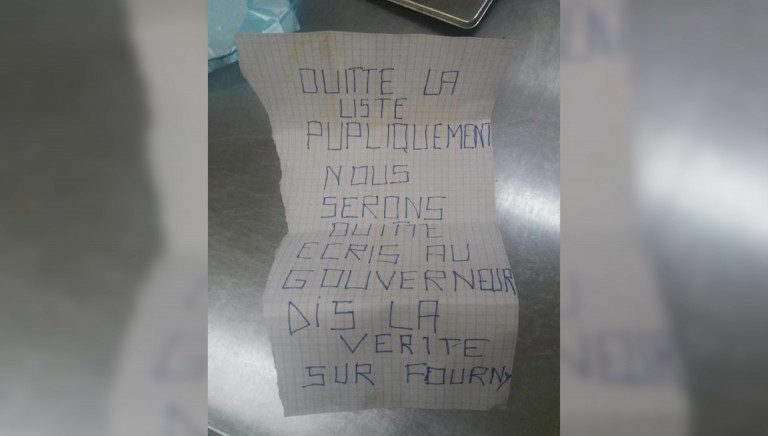 QUITTE LA
LISTE
PUPLIQUEMENT
NOUS
SERONS
QUITTE
ECRIS AU
GOUVERNEUR
DiS LA
VERITE
SUR FOURNY